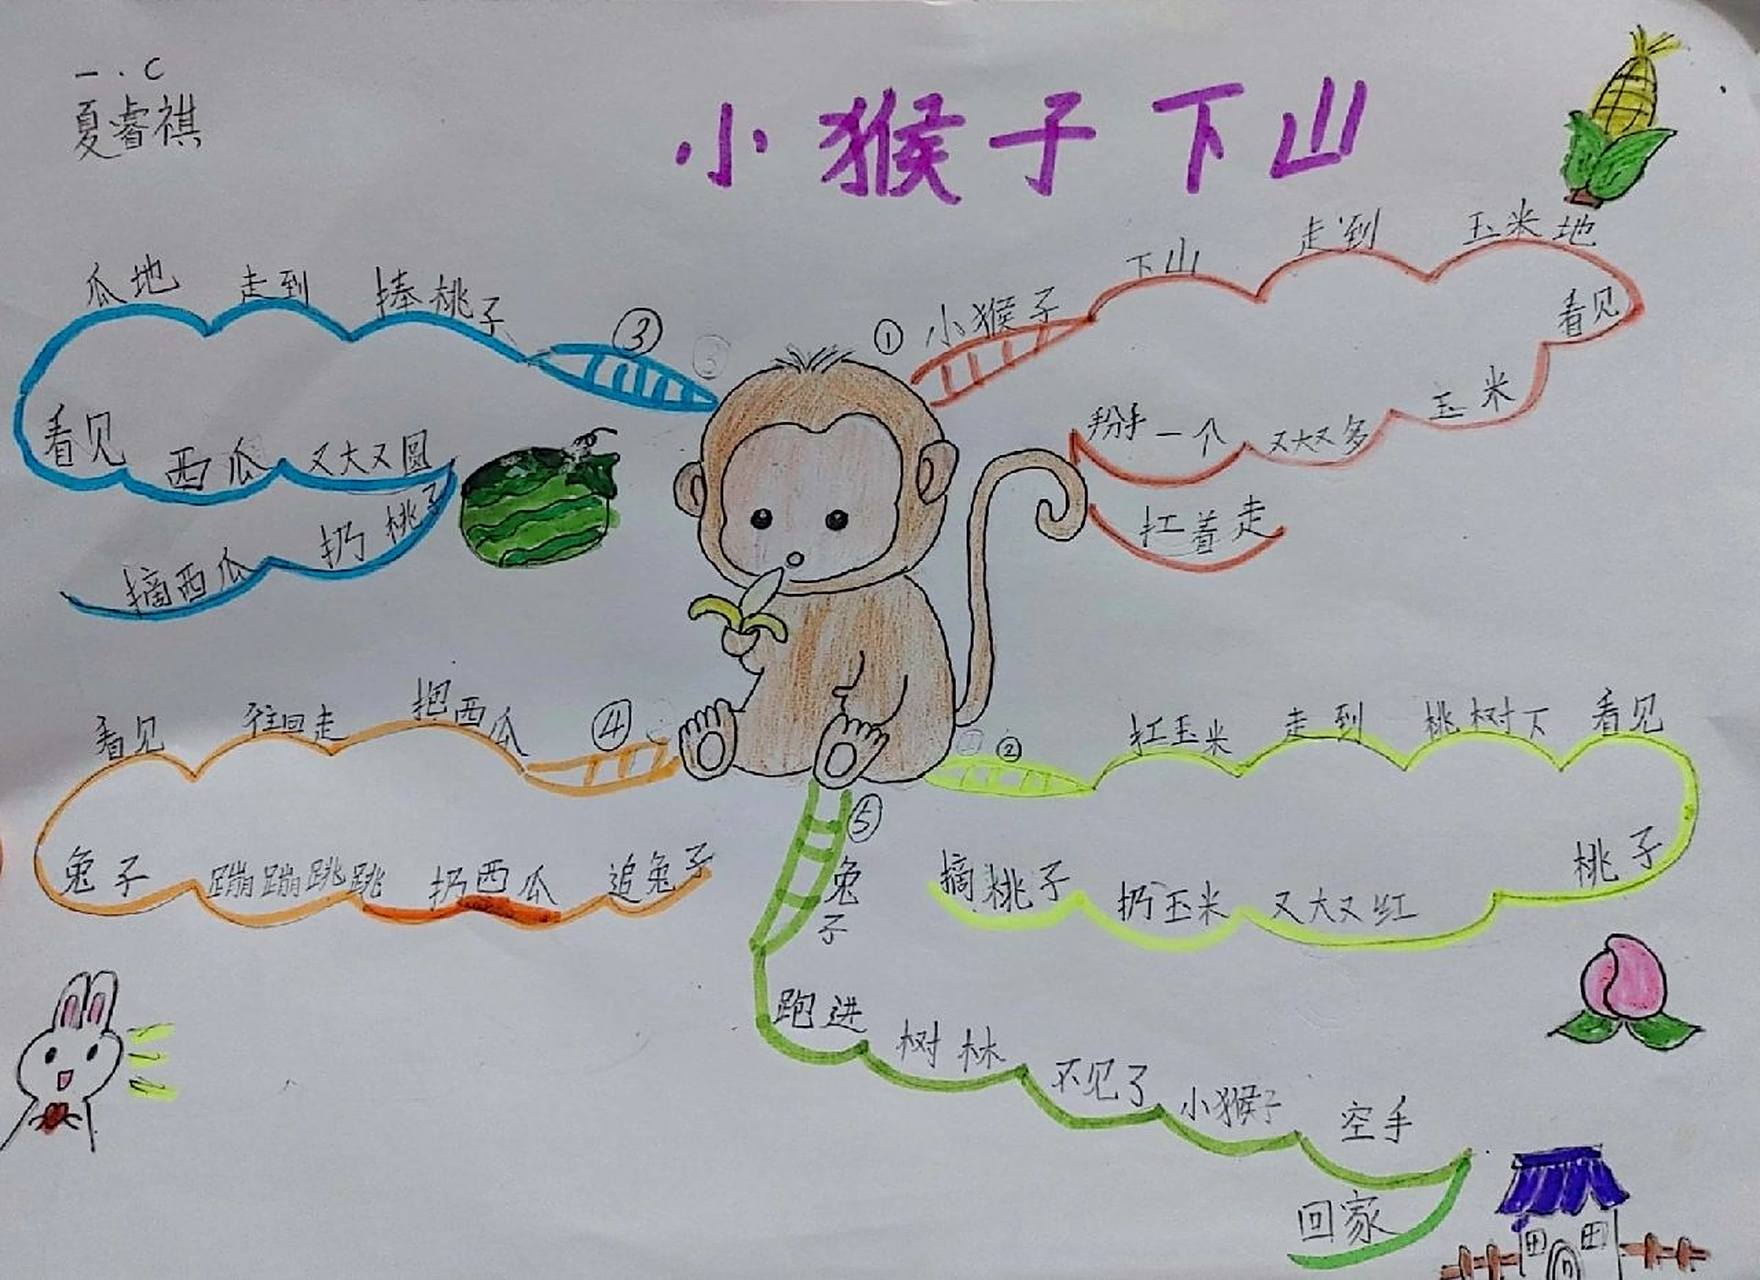 一.C
夏睿祺
小猴子下山
① 小猴子 下山 走到 玉米地
看见
玉米
又大又多
掰一个
扛着走
② 扛玉米 走到 桃树下 看见
桃子
又大又红
扔玉米
摘桃子
③
捧桃子
走到
瓜地
看见 西瓜 又大又圆
扔桃子
摘西瓜
④
把西瓜
往回走
看见
兔子 蹦蹦跳跳 扔西瓜 追兔子
⑤
兔子
跑进
树林
不见了
小猴子
空手
回家